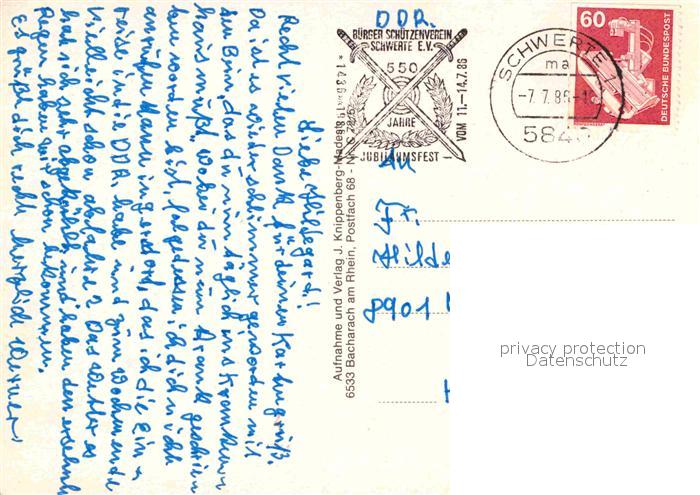 DDR.
BÜRGER SCHÜTZENVEREIN
SCHWERTE E.V.
550
JAHRE
JUBILÄUMSFEST
* 1436 * 1986 *
VOM 11.-14.7.86
SCHWERTE 1
ma
-7.7.86-
584
60
DEUTSCHE BUNDESPOST
An
Fr.
Hilde
8901
privacy protection
Datenschutz
Aufnahme und Verlag J. Knippenberg-Maden
6533 Bacharach am Rhein, Postfach 68 - Nr.
Liebe Hildegard!
Recht vielen Dank für deinen Kartengruß.
Da ist es wieder schlimmer geworden mit
der Bein, das du nun täglich ins Kranken
haus mußt. Wobei du nun krank geschrie
ben worden bist, folgedessen ich dich nicht
anrufen kann in gestort, das ich die Ein
reise in die DDR habe und zum Wochenende
vielleicht schon abfahre? Das Wetter es
hat sich sehr abgekühlt und haben den ersehnte
Regen haben wir schon bekommen.
Es grüßt dich recht herzlich Werner